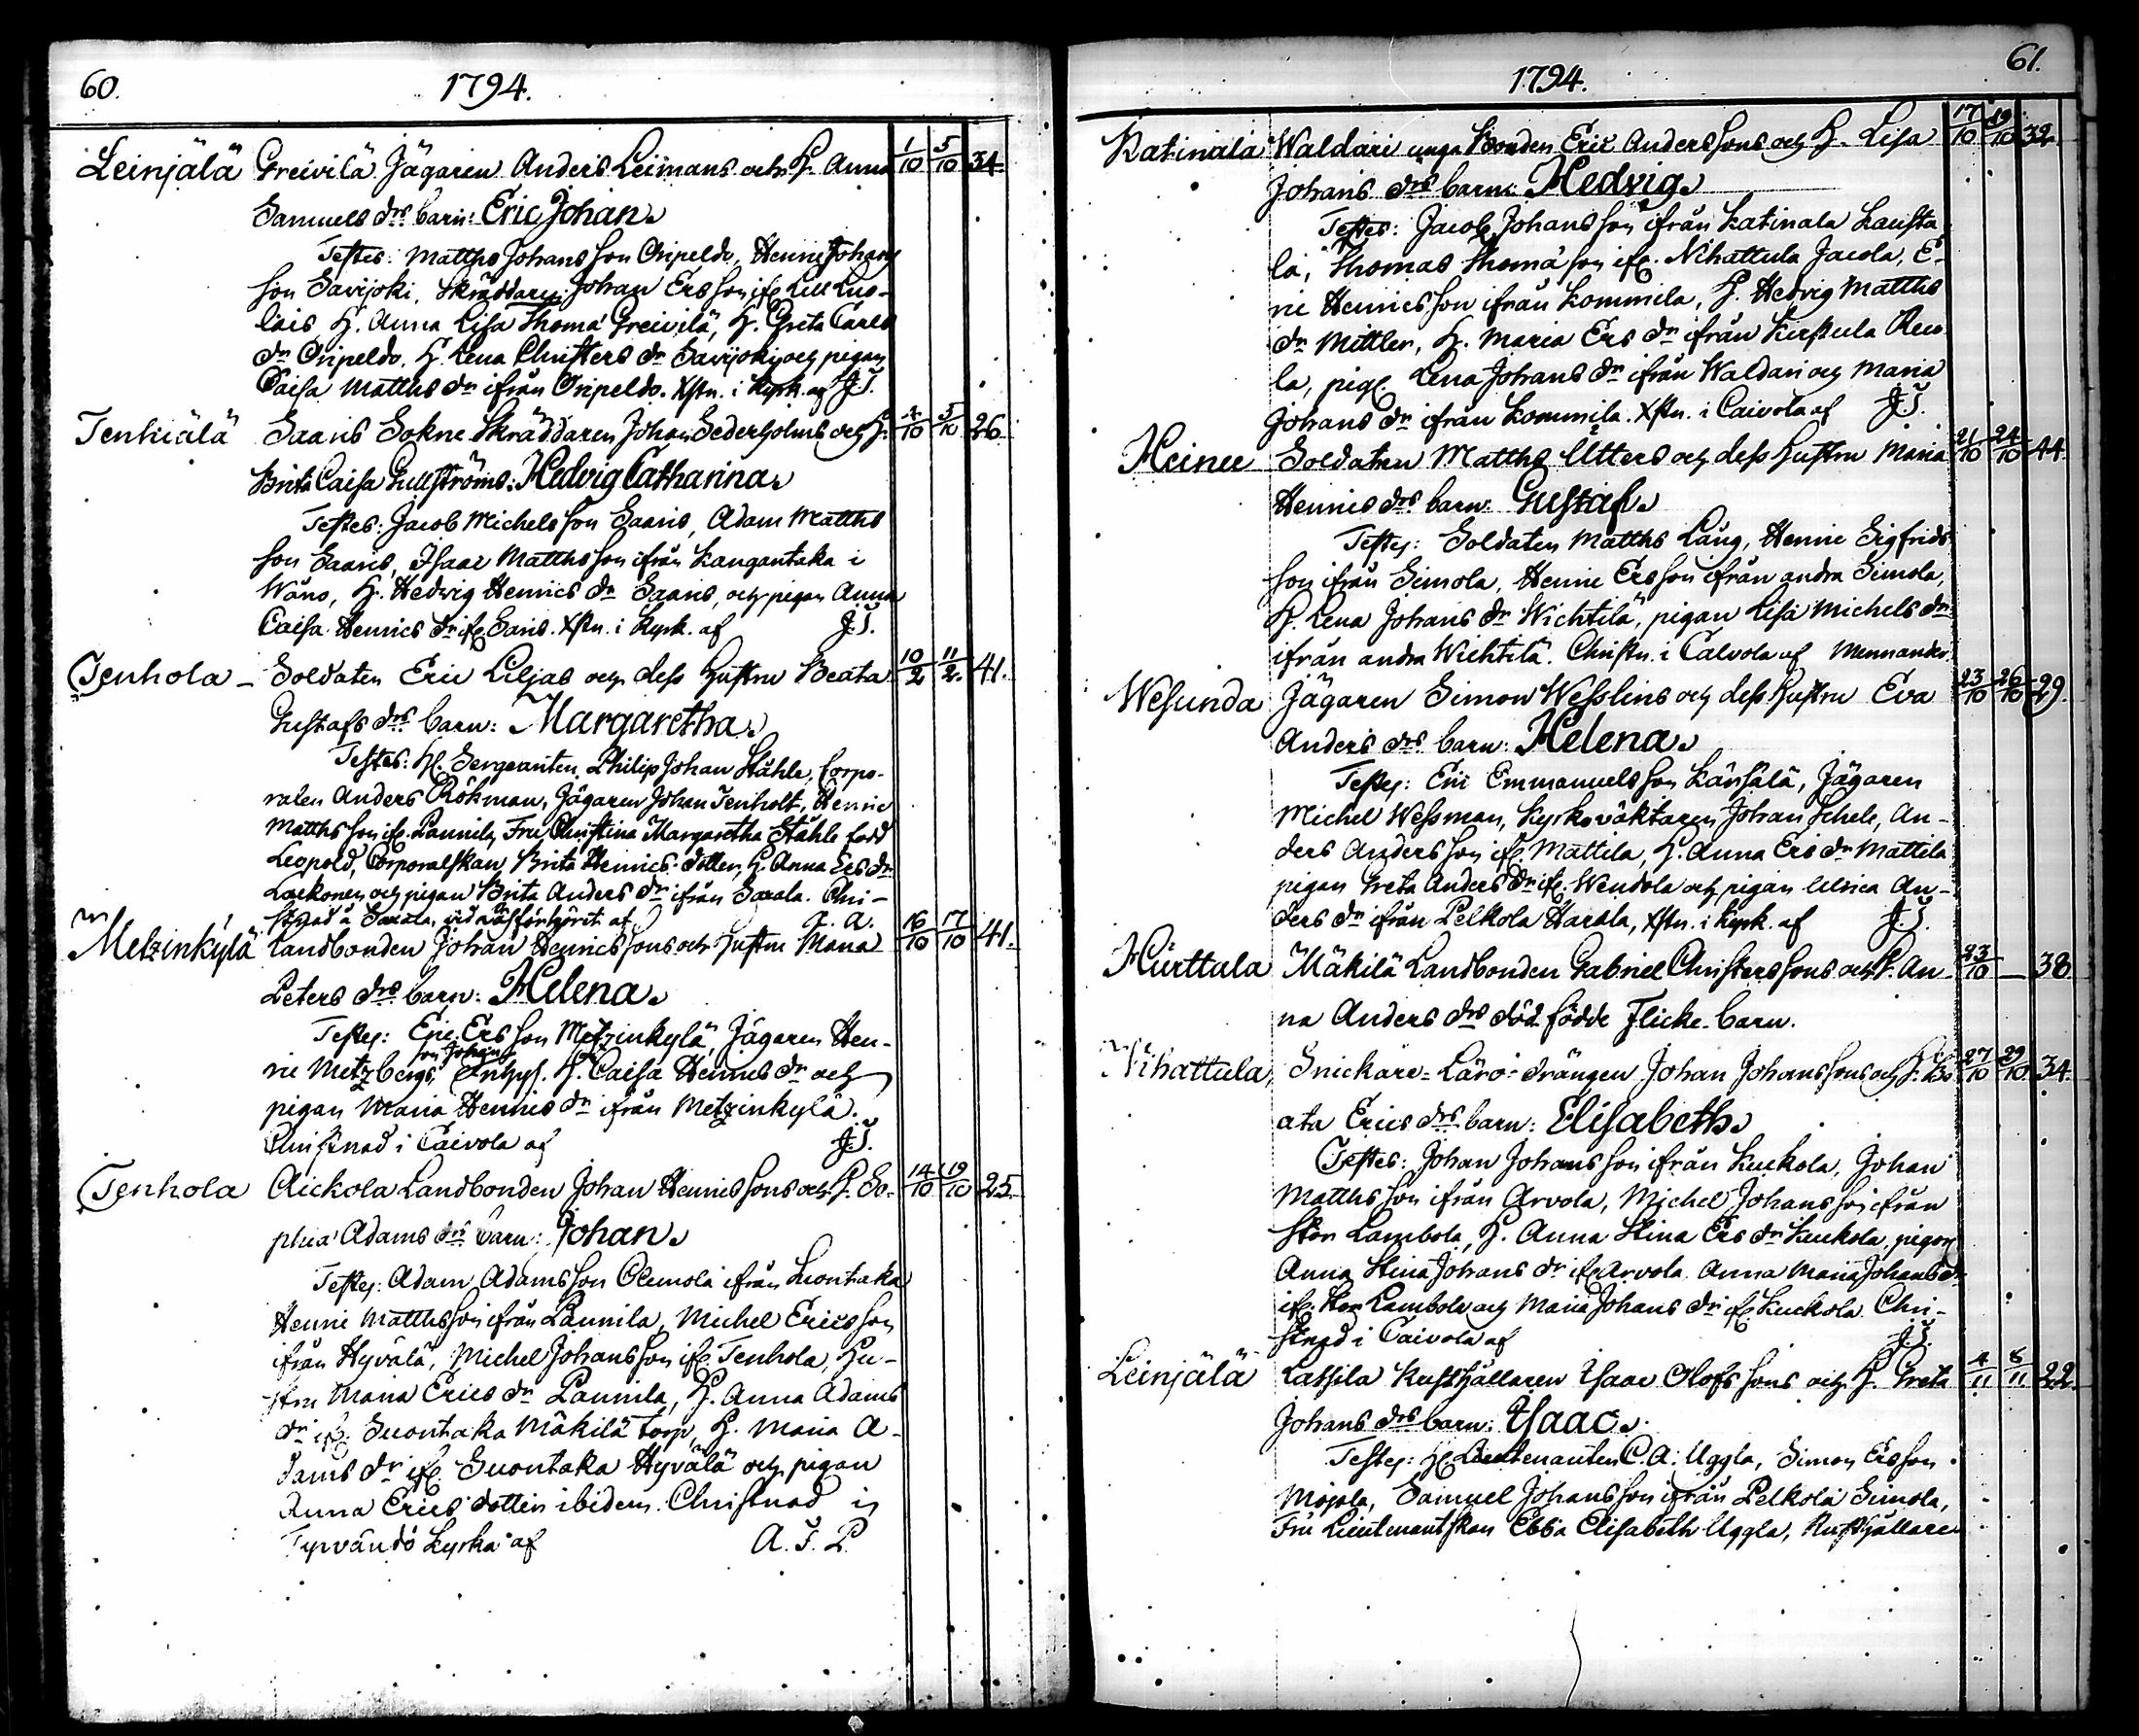 60.
1794.
Leinjälä Greivilä Jägaren Anders Leimans och H. Anna 1/10 5/10 34
Samuels drs barn: Eric Johan.
Testes: Matths Johansson Oripeldo, Henric Johans
son Savijoki, Skräddaren Johan Ersson ifr. Lill Luo-
lais H. Anna Lisa Thoma Greivilä, H. Greta Carls
dr Oripeldo, H. Lena Christers dr Savijoki och pigan
Caisa Matths dr ifrån Oripeldo. Xstn. i Kyrk. af J.T.
Tenhiälä Saaris Sokne Skräddaren Johan Sederholms och H. 4/10 5/10 26
Brita Caisa Gullströms: Hedvig Catharina.
Testes: Jacob Michelsson Saaris, Adam Matths
son Saaris, Isaac Matthsson ifrån Kangantaka i
Wåno, H. Hedvig Henrics dr Saaris, och pigan Anna
Caisa Henrics dr ifr. Saris. Xstn. i Kyrk. af J.T.
Tenhola - Soldaten Eric Liljas och dess hustru Beata 10/2 11/2 41.
Gustafs drs barn: Margaretha.
Testes: Hr. Sergeanten Philip Johan Ståhle, Corpo-
ralen Anders Rökman, Jägaren Johan Tenholt, Henric
Matthsson ifr. Pannila, Fru Christina Margaretha Ståhle född
Leopold, Corporalskan Brita Henrics dotter, H. Anna Ers dr
Laekonen och pigan Brita Anders dr ifrån Saxala. Chri-
stnad i Saxala, vid Läsförhörit af J. A.
Metzinkylä Landbonden Johan Henricssons och hustru Maria 16/10 17/10 41.
Peters drs barn: Helena.
Testes: Eric Ersson Metzinkylä, Jägaren Hen-
son Johan
ric Metzbergs, Enhys. H. Caisa Henrics dr och
pigan Maria Henrics dr ifrån Metzinkylä.
Christnad i Caivola af J.T.
Tenhola Aickola Landbonden Johan Henricssons och H. So- 14/10 19/10 25.
phia Adams drs barn: Johan.
Testes: Adam Adamsson Olemola ifrån Luontaka
Henric Matthsson ifrån Pannila, Michel Ericsson
ifrån Hyvälä, Michel Johansson ifr. Tenhola, Hu-
stru Maria Erics dr Pannila, H. Anna Adams
dr ifr. Suontaka Mäkilä torp, H. Maria A-
dams dr ifr. Suontaka Hyvälä och pigan
Anna Erics dotter ibidem. Christnad i
Tyrvändö Kyrka af A. J. P.
61.
1794.
Katinala Waldari unga Bonden Eric Anderssons och H. Lisa 17/10 19/10 32
Johans drs barn: Hedvig.
Testes: Jacob Johansson ifrån Katinala Lausta
la, Thomas Thomasson ifr. Nihattula Jacola, E-
ric Henricsson ifrån Kommila, H. Hedvig Matths
dr Mittler, H. Maria Ers dr ifrån Kirstula Reco
la, pig. Lena Johans dr ifrån Waldari och Maria
Johans dr ifrån Kommila. Xstn. i Caivola af J.T.
Heinue Soldaten Matths Utters och dess hustru Maria 21/10 24/10 44
Henrics drs barn: Gustaf.
Testes: Soldaten Matths Läng, Henric Sigfrids
son ifrån Simola, Henric Ersson ifrån andra Simola,
H. Lena Johans dr Wichtilä, pigan Lisa Michels dr
ifrån andra Wichtilä. Christn. i Calvola af Mennander.
Wesunda Jägaren Simon Wesslins och dess hustru Eva 23/10 26/10 29.
Anders drs barn: Helena.
Testes: Eric Emmanuelsson Känsälä, Jägaren
Michel Wessman, Kyrkoväktaren Johan Schele, An-
ders Andersson ifr. Mattila, H. Anna Ers dr Mattila
pigan Greta Anders dr ifr. Wendola och pigan Ulrica An-
ders dr ifrån Pelkola Harala, Xstn. i Kyrk. af J.T.
Hurttala Mäkilä Landbonden Gabriel Christerssons och H. An- 23/10 - 38
na Anders drs död födde Flicke-barn.
Nihattula, Snickare-Läro-drängen Johan Johanssons och H. Be- 27/10 29/10 34.
ata Erics drs barn: Elisabeth.
Testes: Johan Johansson ifrån Kuckola, Johan
Matthsson ifrån Arvola, Michel Johansson ifrån
Stor Lambola, H. Anna Stina Ers dr Kuckola, pigan
Anna Stina Johans dr ifr. Arvola Anna Maria Johans dr
ifr. Stor Lambola och Maria Johans dr ifr. Kuckola. Chri-
stnad i Caivola af J.T.
Leinjälä Lassila Rusthållaren Isaac Olofssons och H. Greta 4/11 8/11 22.
Johans drs barn: Isaac.
Testes: Hr. Lieutenanten C. A. Uggla, Simon Ersson
Mojala, Samuel Johansson ifrån Pelkola Simola,
Fru Lieutenantskan Ebba Elisabeth Uggla, Rusthållare